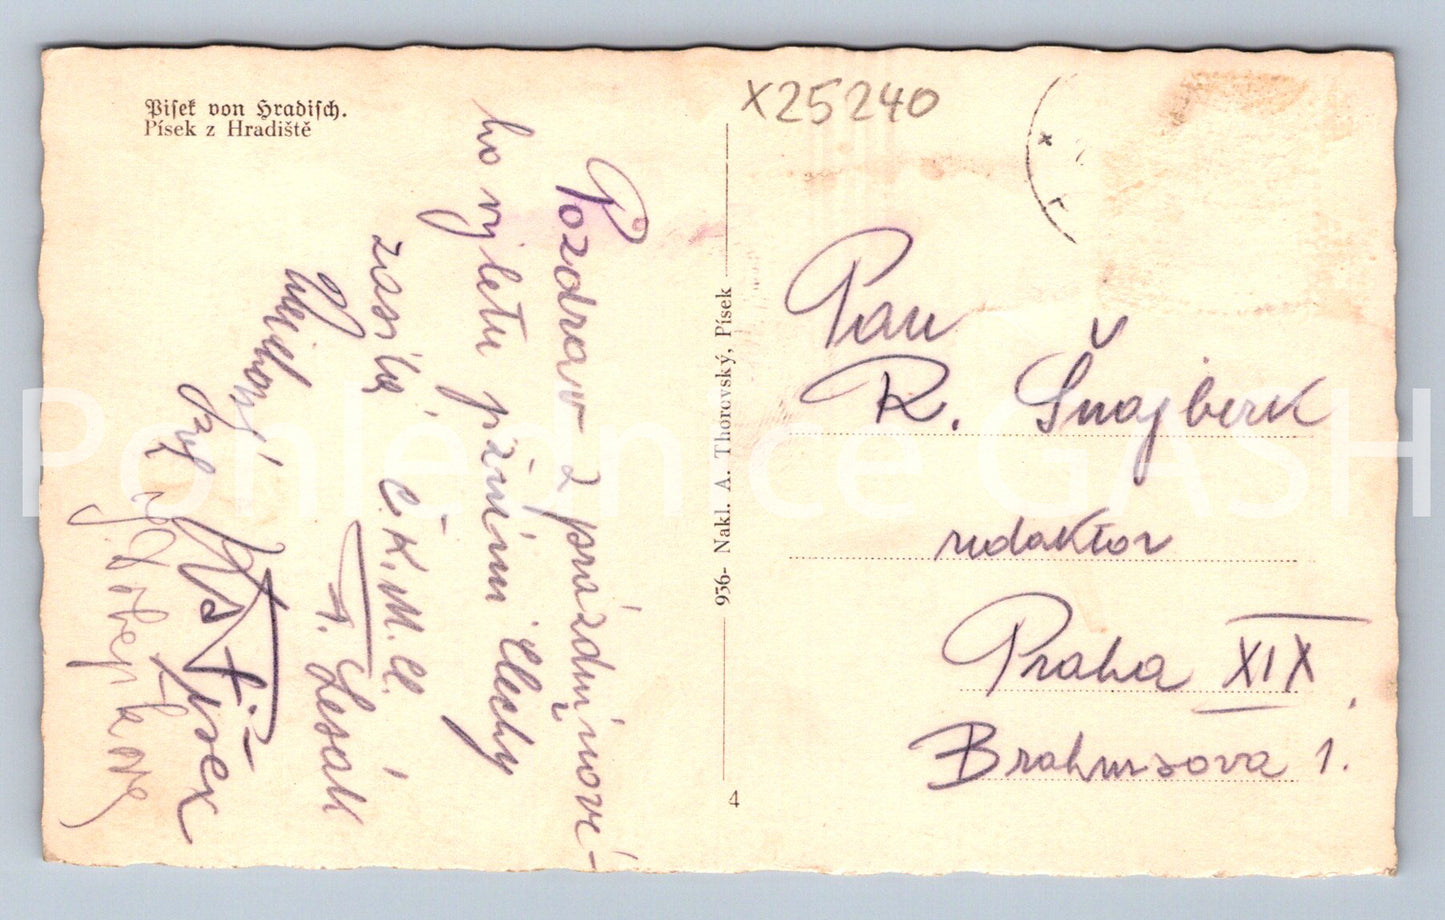 Pisek von Hradisch.
Písek z Hradiště
X25240
Pozdrav z prázdninové-
ho výletu jižními Čechy
zasílá Č.K.M.C.
A. Lesák
956- Nakl. A. Thorovský, Písek
4
Pan
R. Šnajberk
redaktor
Praha XIX
Brahmsova 1.
Pohlednice GASH